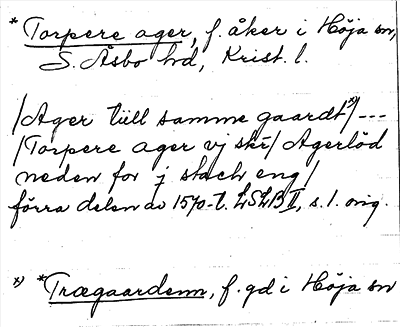 * Torpere ager, f. åker i Höja sn,
S. Åsbo hd, Krist. l.
/Ager tüll samme gaardt x)/ ---
/Torpere ager vj skr/ Agerlöd
neden for j stach eng/
förra delen av 1570-t. LSLB II, s. 1. orig.
x) *Trægaardenn, f. gd i Höja sn